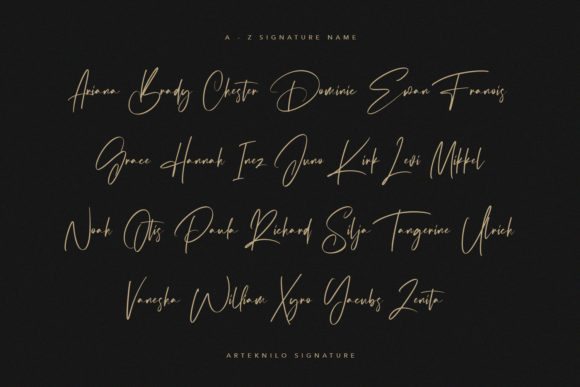 A - Z SIGNATURE NAME
Ariana Brady Chester Dominic Ewan Franois
Grace Hannah Inez Juno Kirk Levi Mikkel
Noah Otis Paula Richard Silja Tangerine Ulrick
Vaneska William Xyro Yacubs Zenita
ARTEKNILO SIGNATURE